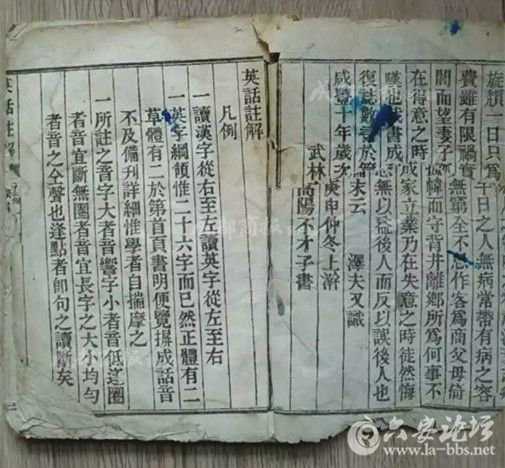 旋頹一日只爲
午日之人無病常帶有病之容
費雖有限禍害
無窮全不忌作客爲商父母倚
閭而望妻子
幃而守背井離鄉所爲何事不
在得意之時
成家立業乃在失意之時徒然悔
嘆也
書成
無以益後人而反以誤後人也
復誌數言於
末云
澤夫又識
咸豐十年歲次庚申仲冬上澣
武林高陽不才子書
英話註解
凡例
一讀漢字從右至左讀英字從左至右
一英字綱領惟二十六字而已然正體有二
草體有二於第首頁書明便覽摒成話音
不及備刊詳細惟學者自揣摩之
一所註之音字大者音響字小者音低逢圈
者音宜斷無圈者音宜長字之大小均勻
者音之全聲也逢點者即句之讀斷矣
英話註解
六安论坛
www.la-bbs.net